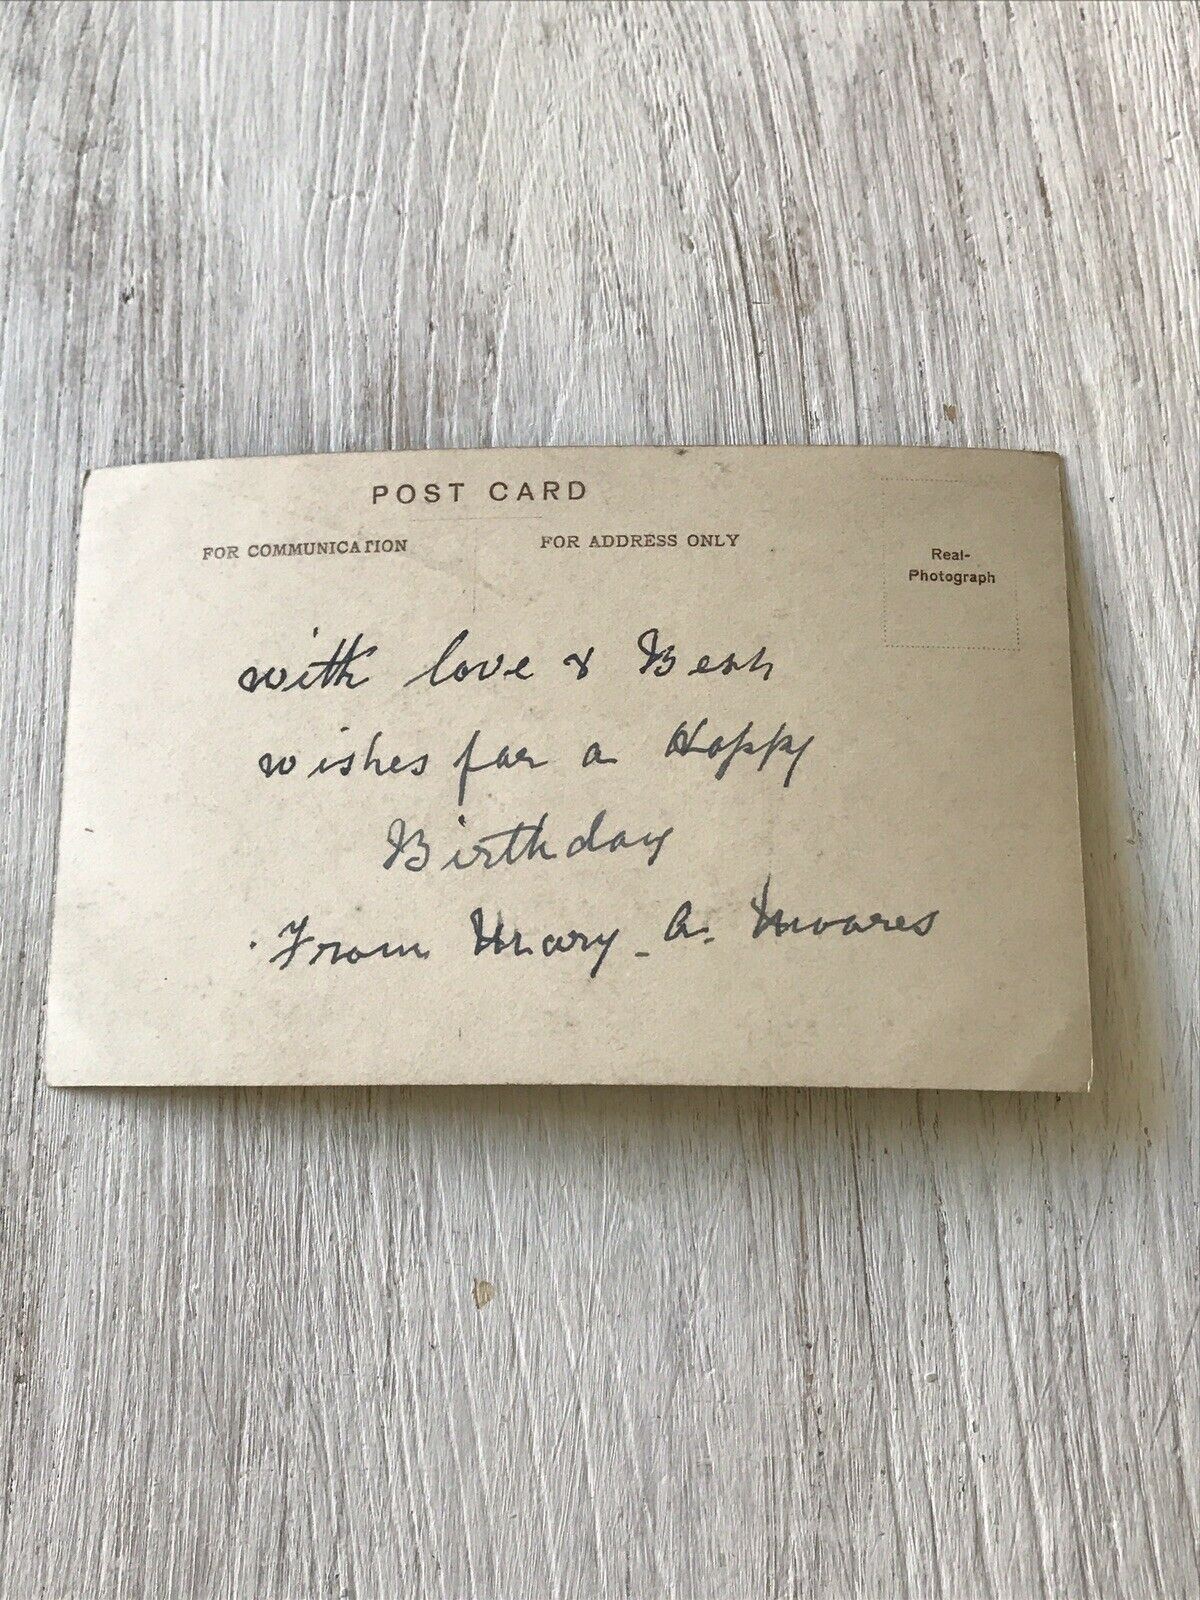 POST CARD
FOR COMMUNICATION
FOR ADDRESS ONLY
Real-
Photograph
with love & Best
wishes for a Happy
Birthday
From Mary. A. Moores